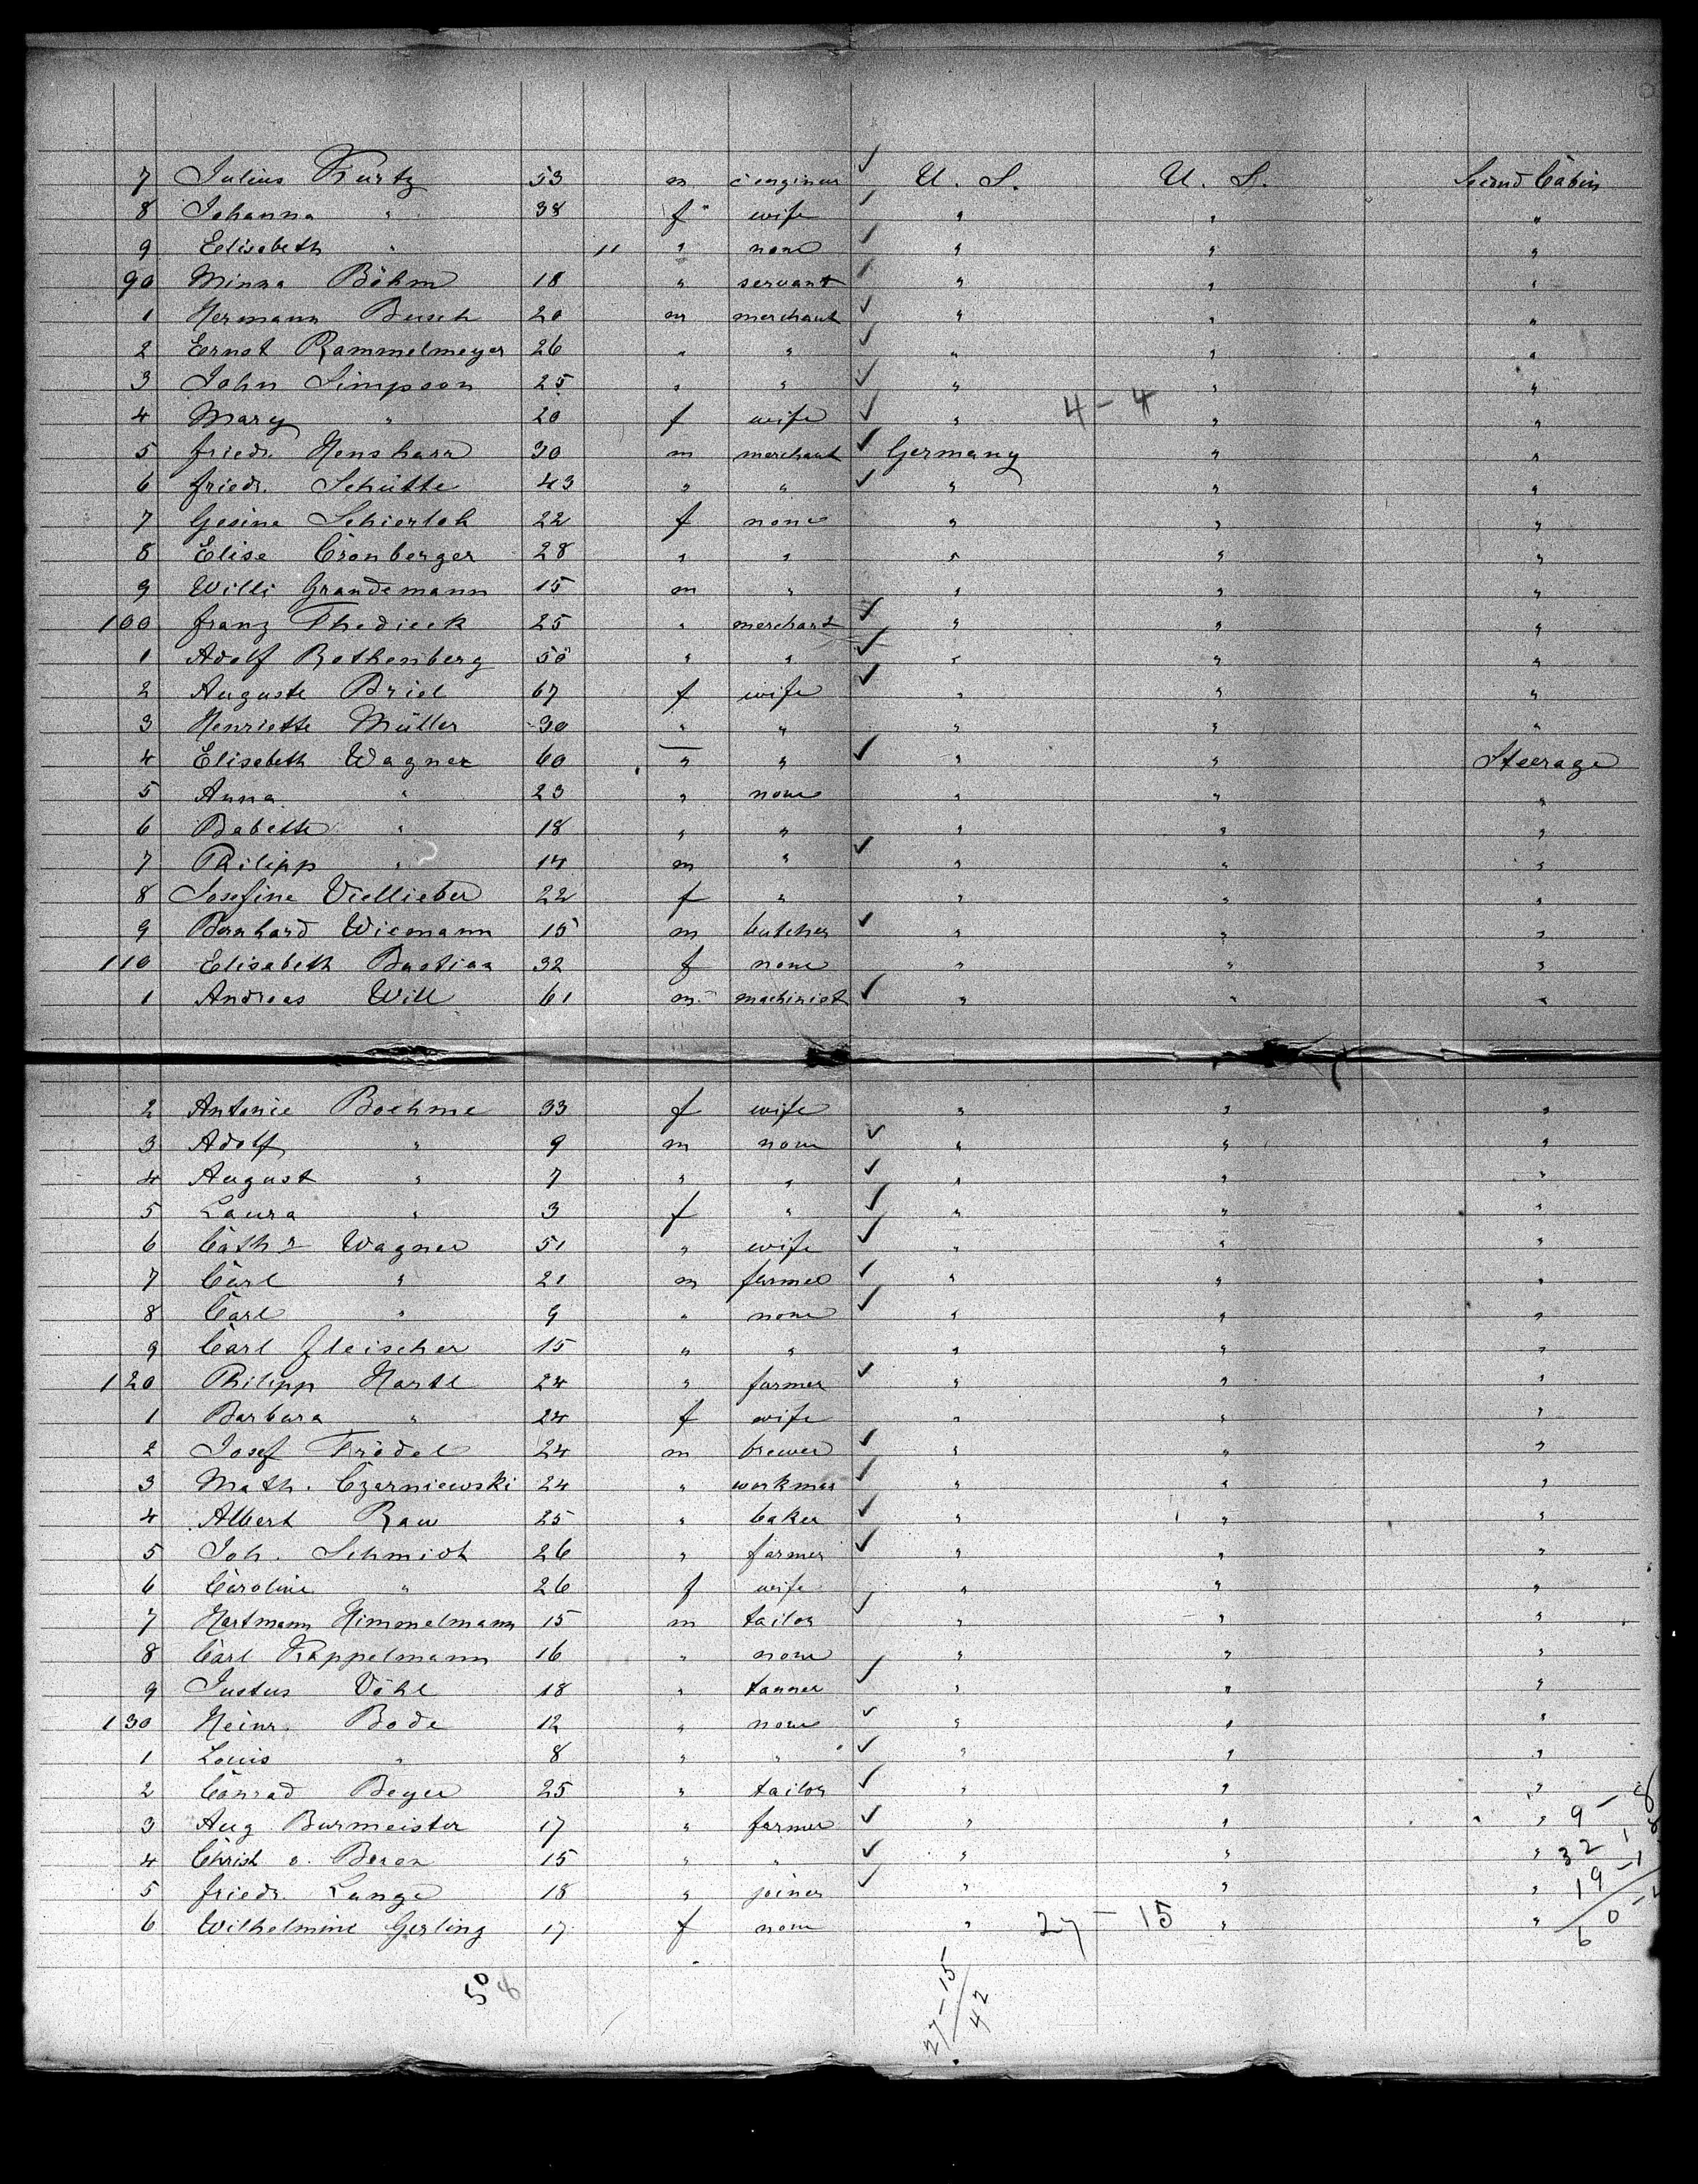 7 Julius Kurtz 53 m c engineer ✓ U. S. U. S. Second Cabin
8 Johanna " 38 f wife ✓ " " "
9 Elisabeth " 11 " none ✓ " " "
90 Minna Böhm 18 " servant ✓ " " "
1 Hermann Busch 20 m merchant ✓ " " "
2 Ernst Rammelmeyer 26 " " ✓ " " "
3 John Simpson 25 " " ✓ " " "
4 Mary " 20 f wife ✓ " 4-4 " "
5 Friedr. Henshorn 30 m merchant ✓ Germany " "
6 Friedr. Schütte 43 " " ✓ " " "
7 Gesine Schierloh 22 f none " " "
8 Elise Cronberger 28 " " " " "
9 Willi Grandemann 15 m " " " "
100 Franz Thedieck 25 " merchant ✓ " " "
1 Adolf Rothenberg 50 " " ✓ " " "
2 Auguste Briel 67 f wife ✓ " " "
3 Henriette Müller 30 " " " " "
4 Elisabeth Wagner 60 " " ✓ " " Steerage
5 Anna " 23 " none " " "
6 Babette " 18 " " " " "
7 Philipp " 14 m " ✓ " " "
8 Josefine Viellieber 22 f " " " "
9 Bernhard Wiemann 15 m butcher ✓ " " "
110 Elisabeth Bastian 32 f none " " "
1 Andreas Will 61 m machinist ✓ " " "
2 Antonie Boehme 33 f wife " " "
3 Adolf " 9 m none ✓ " " "
4 August " 7 " " ✓ " " "
5 Laura " 3 f " ✓ " " "
6 Cath. Wagner 51 " wife ✓ " " "
7 Carl " 21 m farmer ✓ " " "
8 Carl " 9 " none ✓ " " "
9 Carl Fleischer 15 " " " " "
120 Philipp Hartl 24 " farmer ✓ " " "
1 Barbara " 24 f wife " " "
2 Josef Frödel 24 m brewer ✓ " " "
3 Math. Czerniewski 24 " workman ✓ " " "
4 Albert Raw 25 " baker ✓ " " "
5 Joh. Schmidt 26 " farmer ✓ " " "
6 Caroline " 26 f wife " " "
7 Hartmann Himmelmann 15 m tailor ✓ " " "
8 Carl Kappelmann 16 " none " " "
9 Justus Vöhl 18 " tanner ✓ " " "
130 Heinr. Bode 12 " none ✓ " " "
1 Louis " 8 " " ✓ " " "
2 Conrad Beyer 25 " tailor ✓ " " "
3 Aug Burmeister 17 " farmer ✓ " " " 9 - 8
4 Christ v. Beren 15 " " ✓ " " " 32
5 Friedr. Lange 18 " joiner ✓ " " " 19
6 Wilhelmine Gerling 17 f none " 27 - 15 " " 60
50
27-15
42